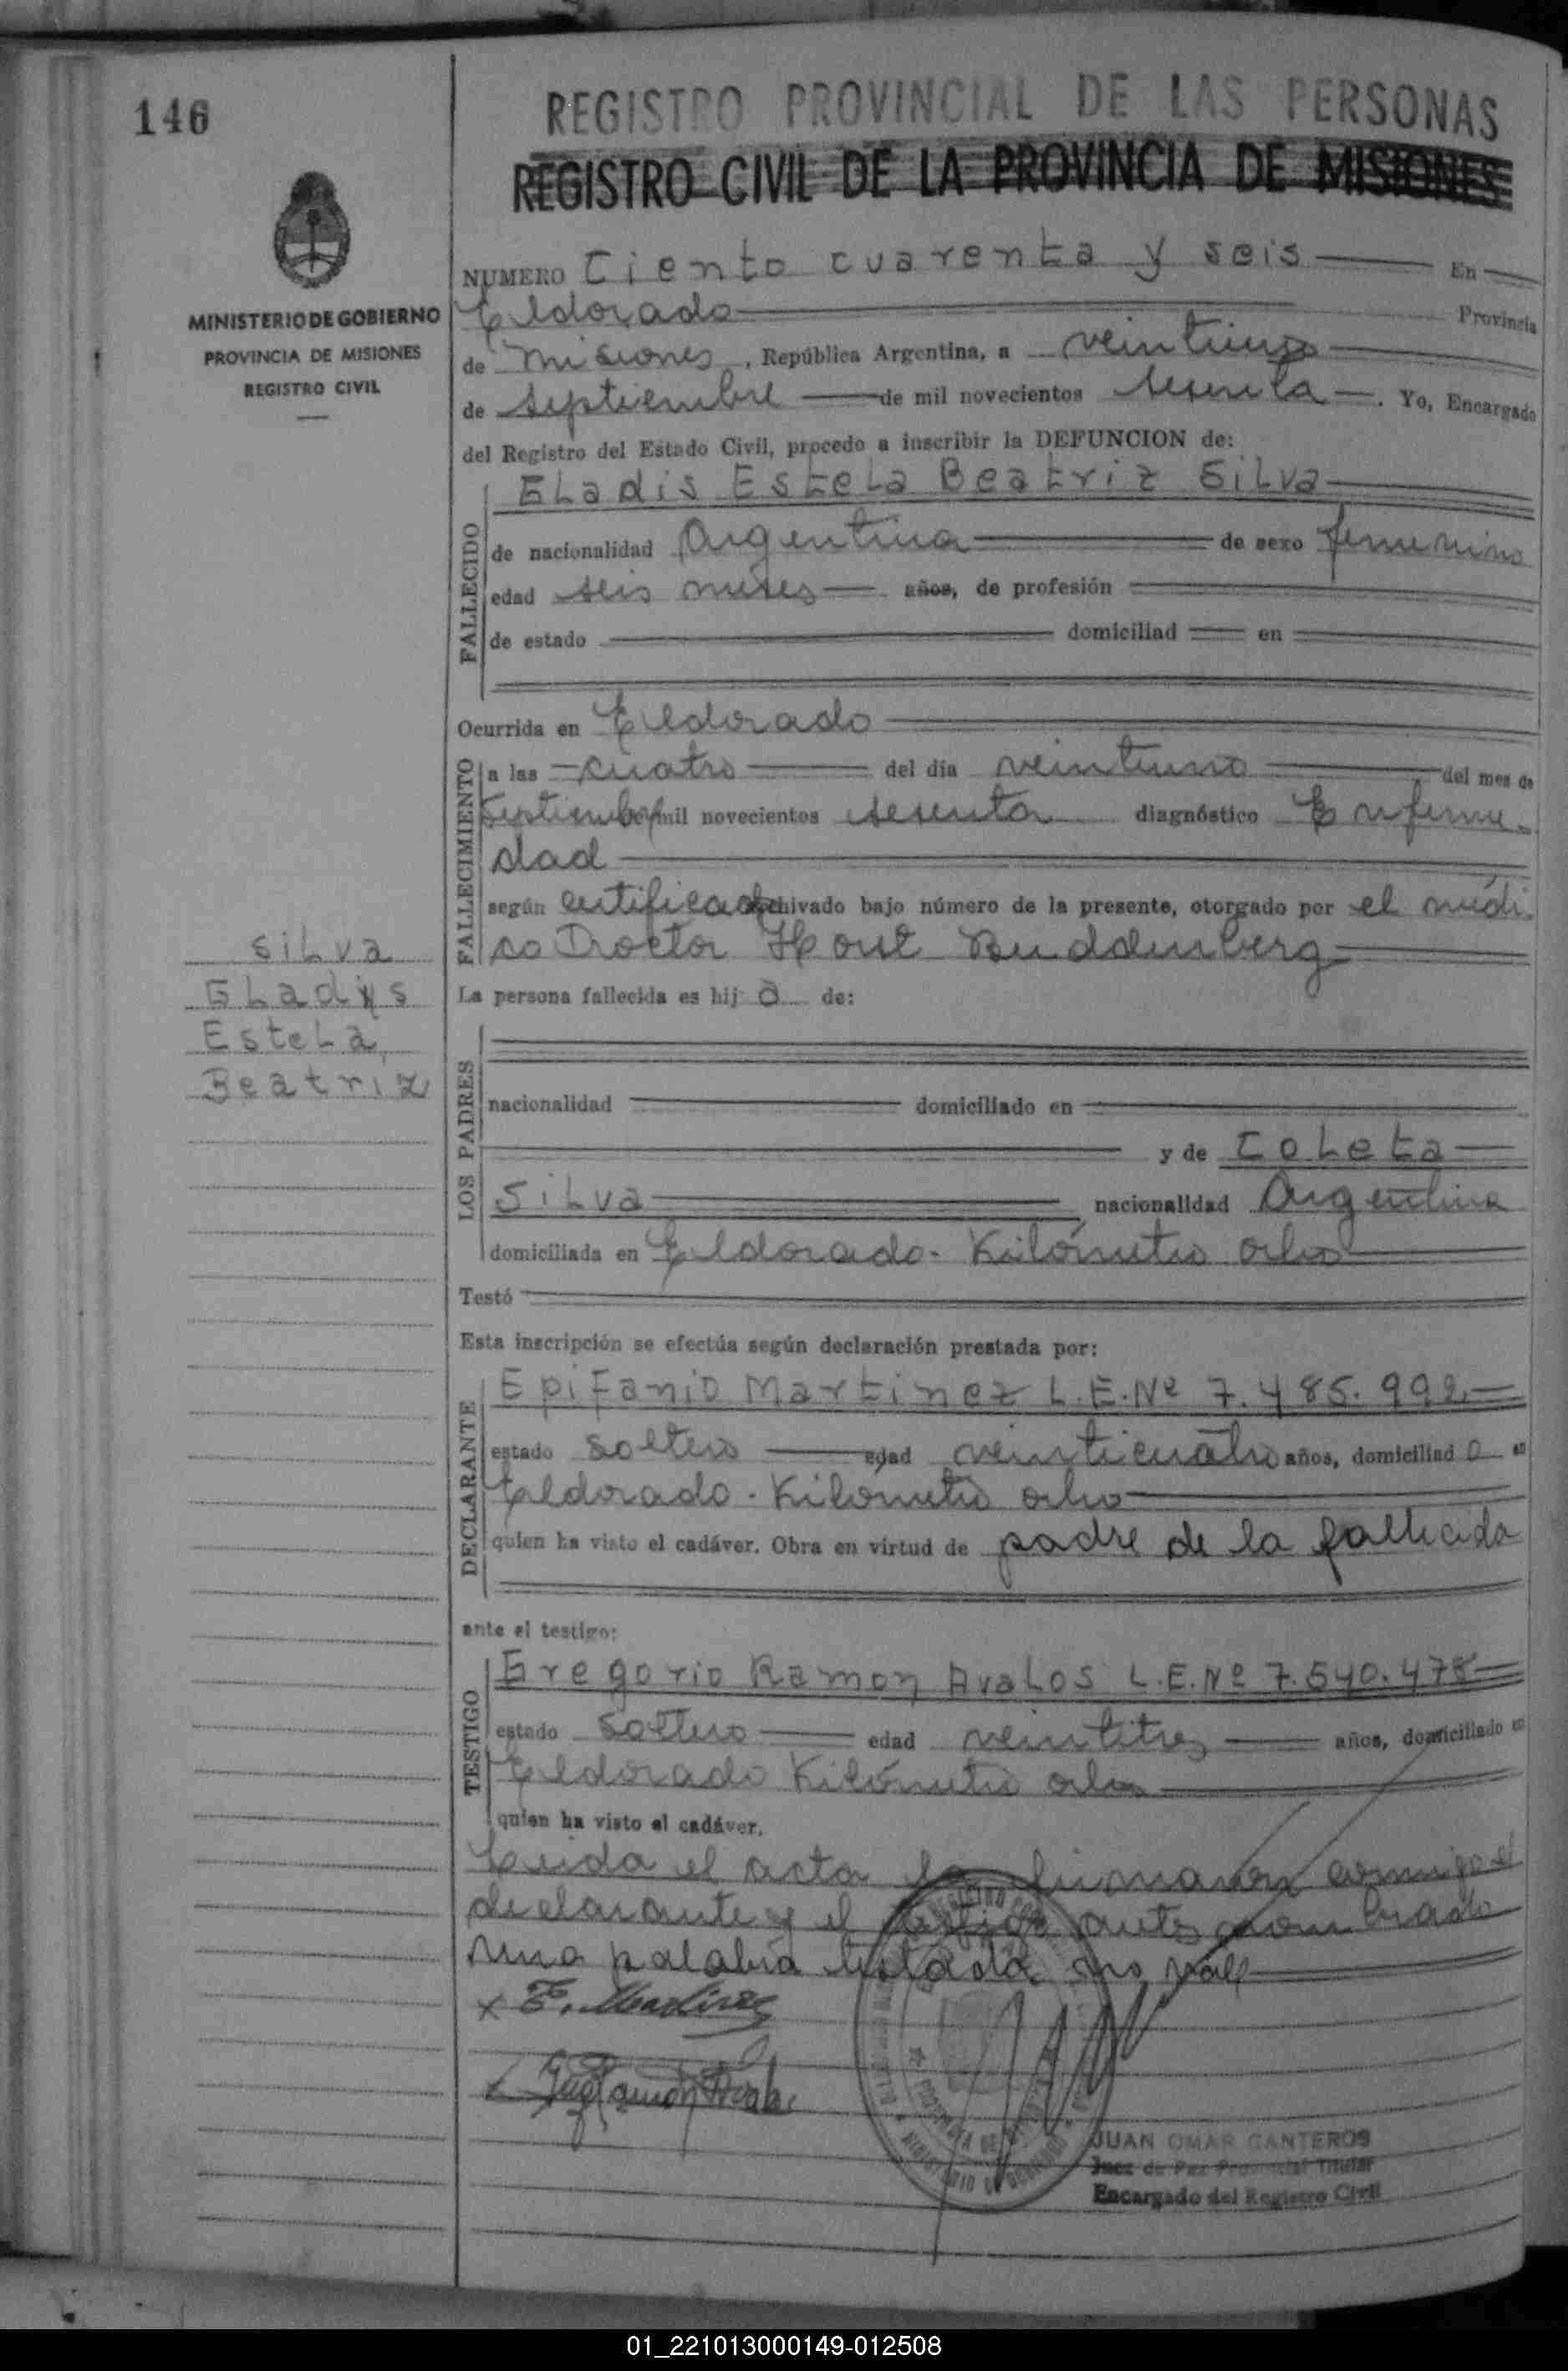 146
REGISTRO PROVINCIAL DE LAS PERSONAS
REGISTRO CIVIL DE LA PROVINCIA DE MISIONES
MINISTERIO DE GOBIERNO
PROVINCIA DE MISIONES
REGISTRO CIVIL
NUMERO Ciento cuarenta y seis En
Eldorado Provincia
de Misiones, República Argentina, a veintiuno
de septiembre de mil novecientos sesenta. Yo, Encargado
del Registro del Estado Civil, procedo a inscribir la DEFUNCION de:
FALLECIDO
Gladis Estela Beatriz Silva
de nacionalidad Argentina de sexo femenino
edad seis meses años, de profesión
de estado domiciliad en
Ocurrida en Eldorado
FALLECIMIENTO
a las cuatro del día veintiuno del mes de
Septiembre mil novecientos sesenta diagnóstico Enferme-
dad
según certificado archivado bajo número de la presente, otorgado por el médi-
co Doctor Horst Buddenberg
Silva
Gladys
Estela
Beatriz
La persona fallecida es hija de:
LOS PADRES
nacionalidad domiciliado en
y de Coleta
Silva nacionalidad Argentina
domiciliada en Eldorado- Kilómetro ocho
Testó
Esta inscripción se efectúa según declaración prestada por:
DECLARANTE
Epifanio Martinez L.E.Nº 7.485.992
estado soltero edad veinticuatro años, domiciliado en
Eldorado - Kilómetro ocho
quien ha visto el cadáver. Obra en virtud de padre de la fallecida
ante el testigo:
TESTIGO
Gregorio Ramon Avalos L.E.Nº 7.540.478
estado soltero edad veintitres años, domiciliado en
Eldorado Kilómetro ocho
quien ha visto el cadáver.
Leida el acta la firmaron conmigo el
declarante y el testigo antes nombrado
una palabra testada no vale
x E. Martinez
JUAN OMAR CANTEROS
Juez de Paz Provincial Titular
Encargado del Registro Civil
01_221013000149-012508